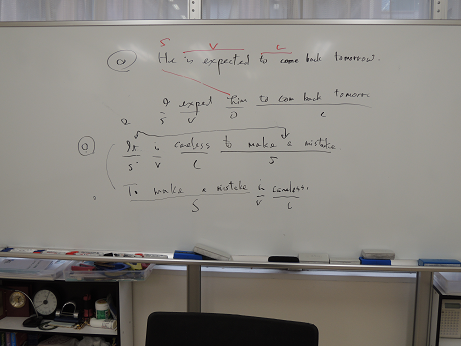 S V C
① He is expected to come back tomorrow.
I expect him to com back tomorrc
S V O C
② It is careless to make a mistake
S' V C S
To make a mistake is careless.
S V C